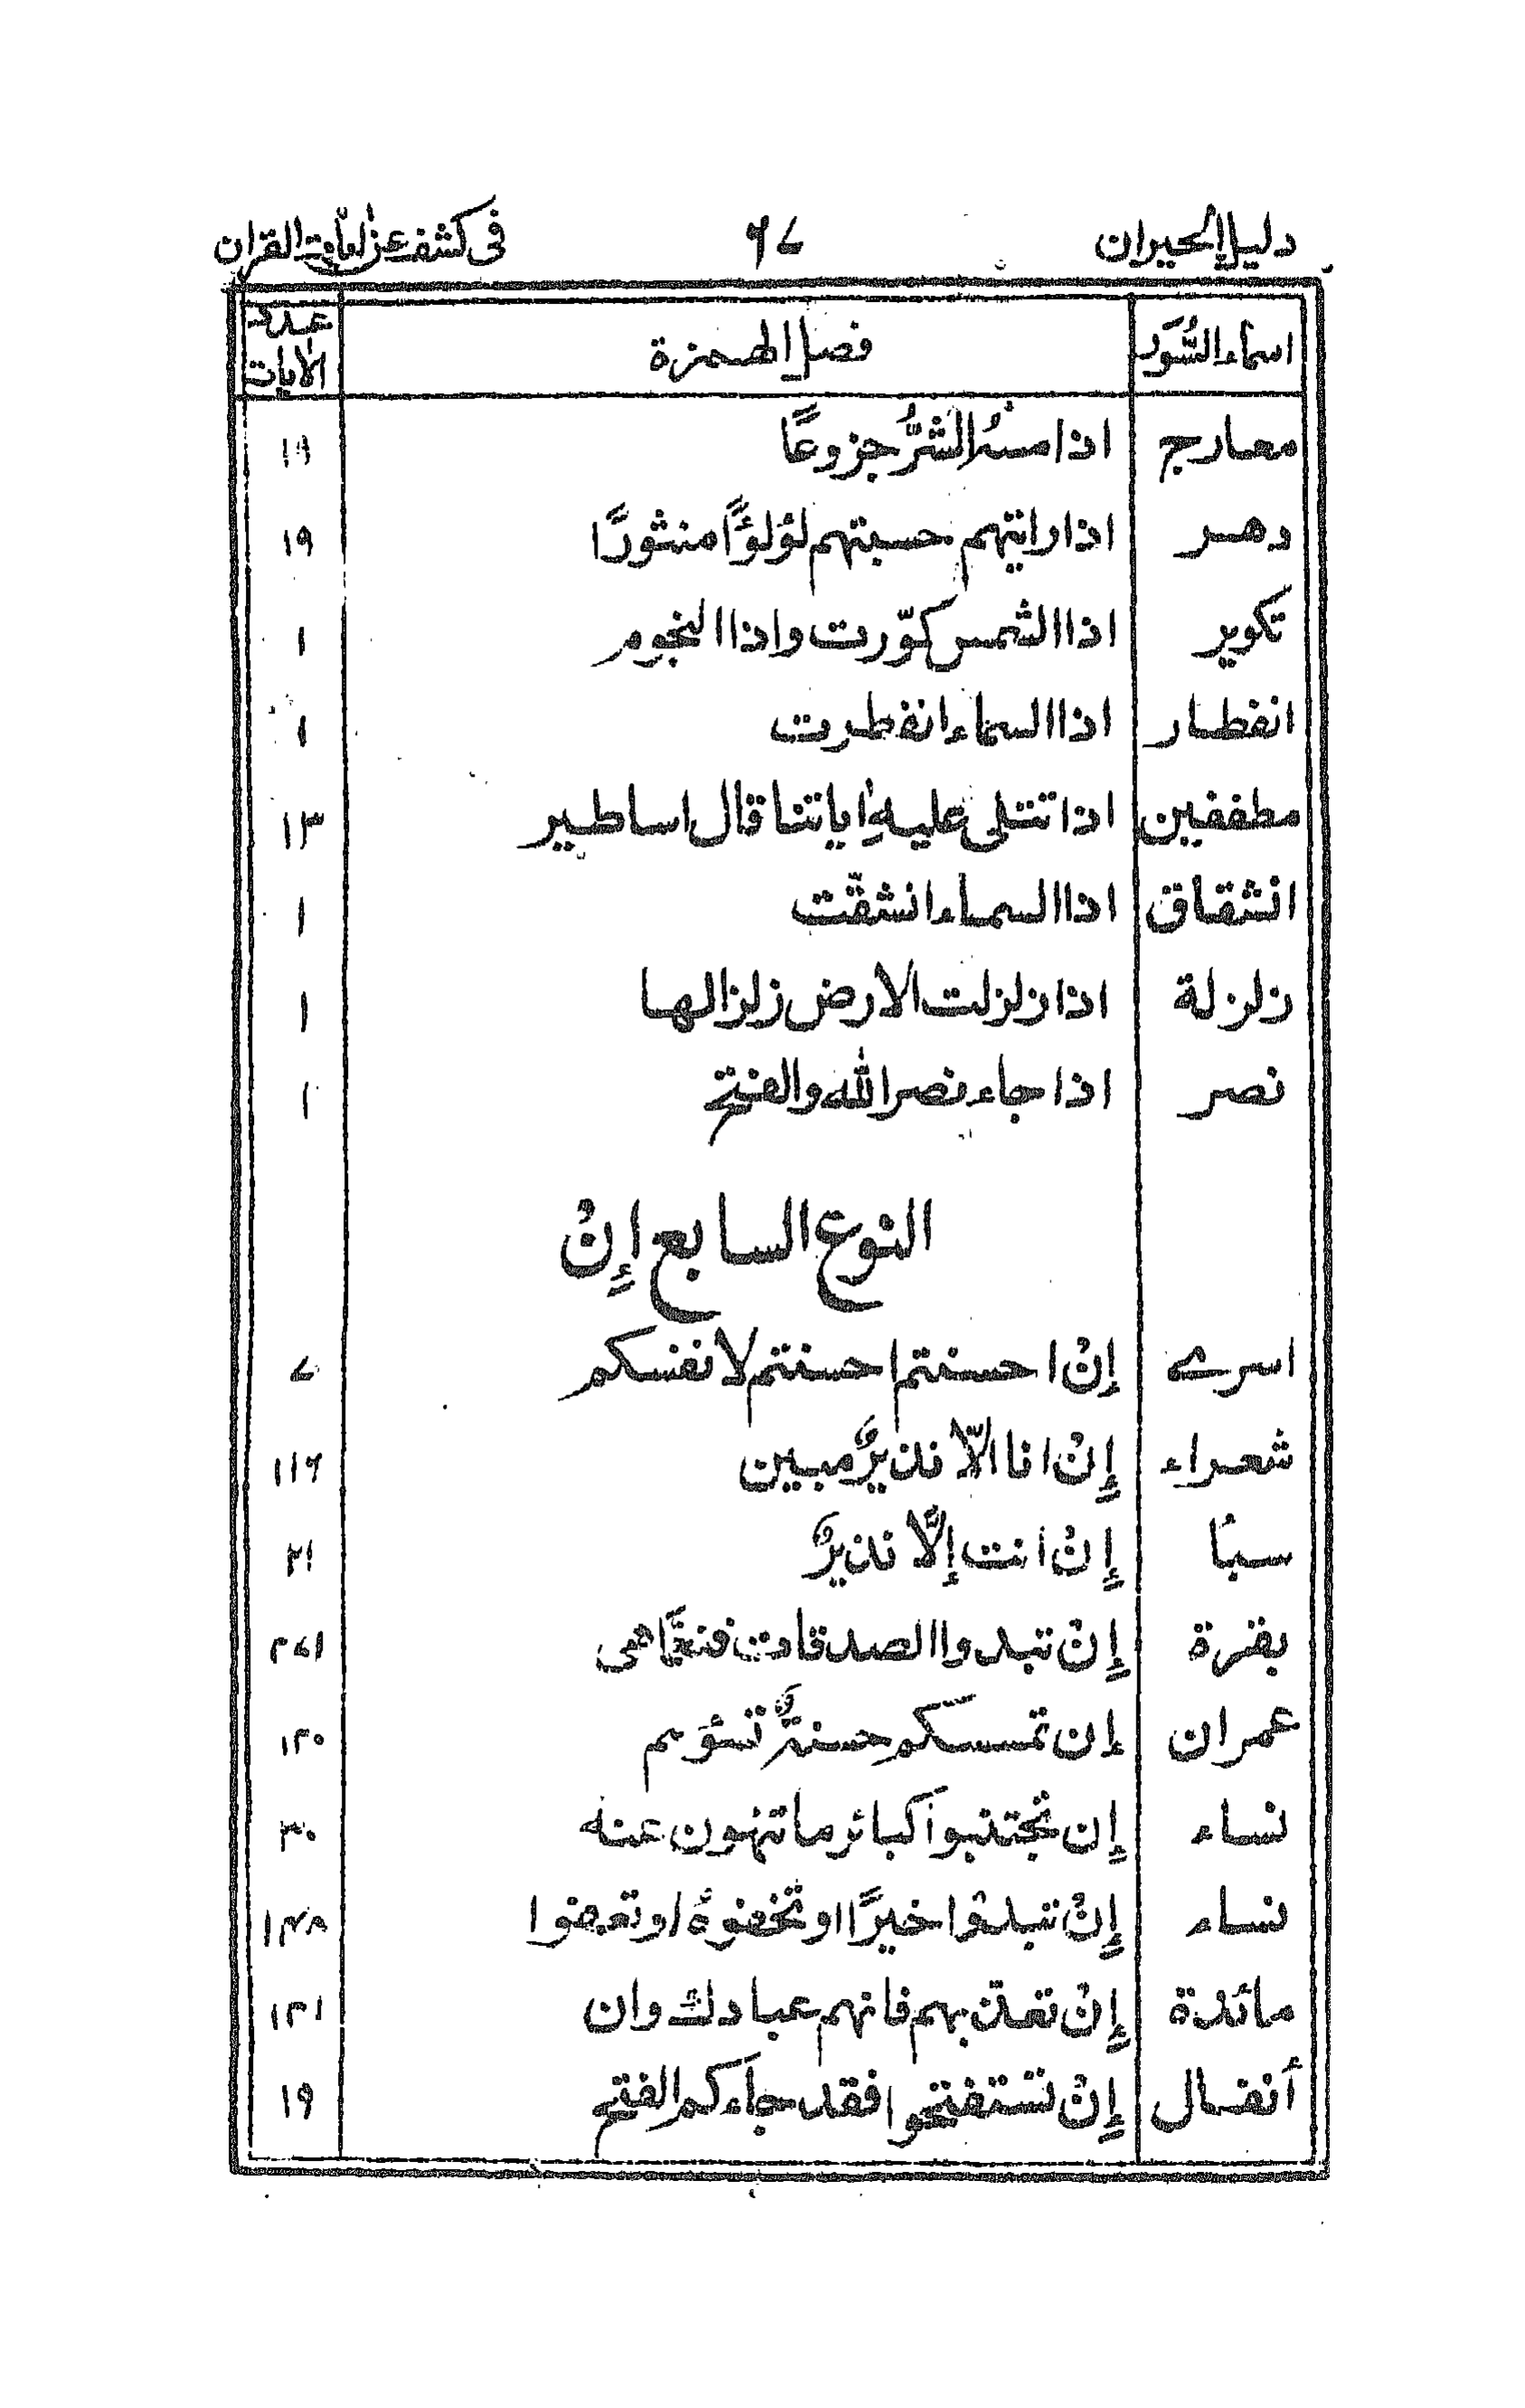 دليل الحيران ٦٧ فى كشف عن اٰيات القران
اسماء السُّوَر فصل الهمزة عدد الاٰيات
معارج اذا مسّهُ الشَّرُّ جزوعًا ١٩
دهر اذا رايتهم حسبتهم لؤلؤًا منثورًا ١٩
تكوير اذا الشمس كوّرت واذا النجوم ١
انفطار اذا السماء انفطرت ١
مطففين اذا تتلى عليهِ اٰياتنا قال اساطير ١٣
انشقاق اذا السماء انشقّت ١
زلزلة اذا زلزلت الارض زلزالها ١
نصر اذا جاء نصر الله والفتح ١
النوع السابع إِنْ
اسرے إِنْ احسنتم احسنتم لانفسكم ٧
شعراء إِنْ انا الّا نذيرٌ مبين ١١٦
سبأ إِنْ انت إلَّا نذيرٌ ٢١
بقرة إِنْ تبدوا الصدقات فنعمَّا هى ٢٧١
عمران إن تمسسكم حسنةٌ تسؤهم ١٢٠
نساء إِن تجتنبوا كبائر ما تنهون عنه ٣٠
نساء إِنْ تبدُوا خيرًا او تخفوهُ او تعفوا ١٤٨
مائدة إِنْ تعذبهم فانهم عبادك وان ١٢١
أنفال إِنْ تستفتحوا فقد جاءكم الفتح ١٩